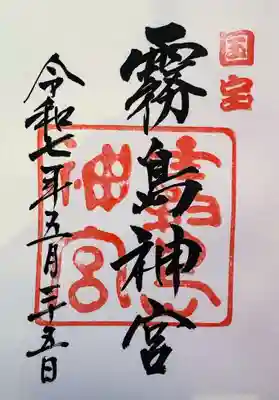 国宝
霧島神宮
令和七年五月二十五日